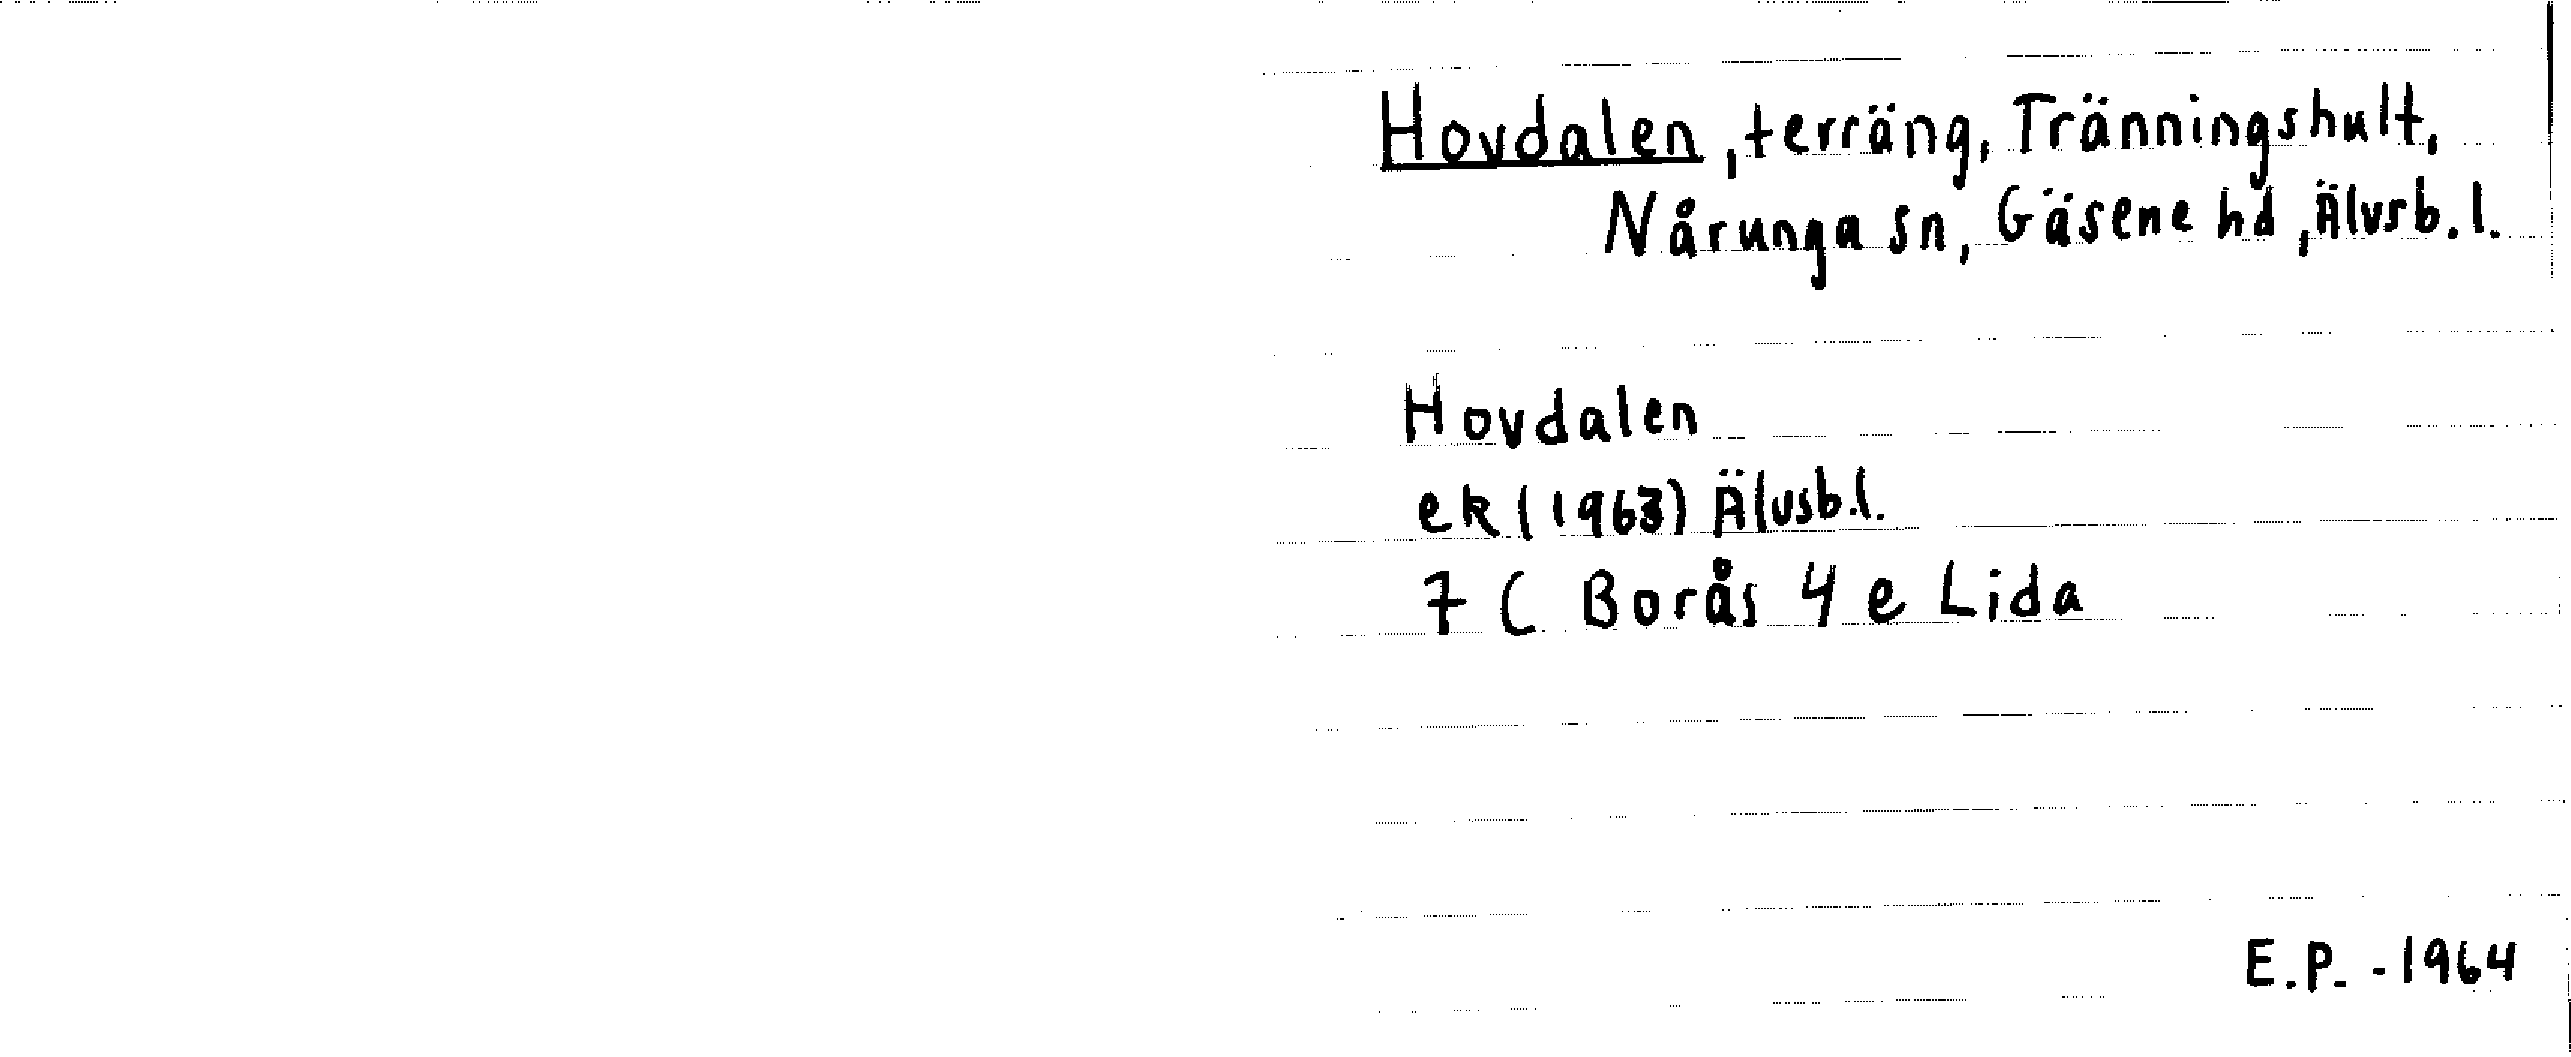 Hovdalen, terräng, Tränningshult,
Nårunga sn, Gäsene hd, Älvsb.l.
Hovdalen
ek (1963) Älvsb.l.
7 C Borås 4 e Lida
E.P. - 1964